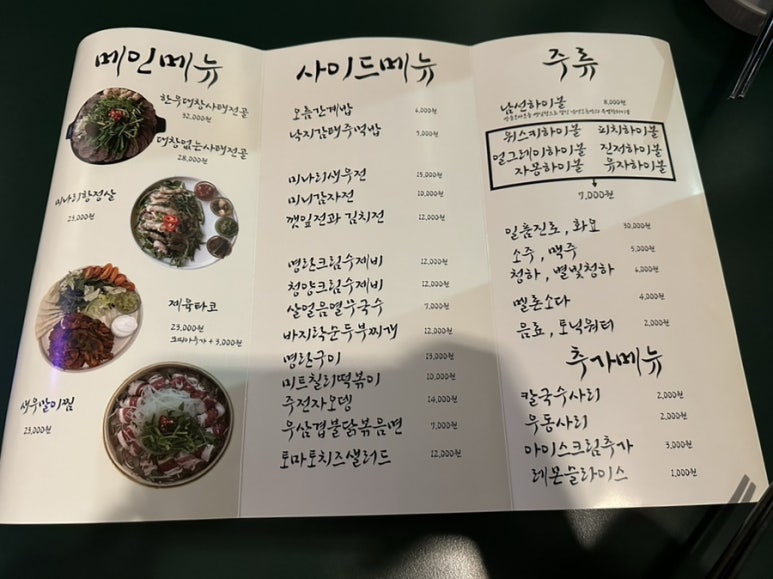 메인메뉴
한우대창사태전골
32,000원
대창없는사태전골
28,000원
미나리항정살
23,000원
제육타코
23,000원
또띠아추가 + 3,000원
새우말이찜
23,000원
사이드메뉴
오름간계밥 6,000원
낙지감태주먹밥 7,000원
미나리새우전 15,000원
미니감자전 10,000원
깻잎전과 김치전 12,000원
명란크림수제비 12,000원
청양크림수제비 12,000원
살얼음열무국수 7,000원
바지락순두부찌개 12,000원
명란구이 13,000원
미트칠리떡볶이 10,000원
주전자오뎅 14,000원
우삼겹불닭볶음면 7,000원
토마토치즈샐러드 12,000원
주류
남선하이볼 8,000원
위스키하이볼 피치하이볼
얼그레이하이볼 진저하이볼
자몽하이볼 유자하이볼
7,000원
일품진로, 화요 30,000원
소주, 맥주 5,000원
청하, 별빛청하 6,000원
멜론소다 4,000원
음료, 토닉워터 2,000원
추가메뉴
칼국수사리 2,000원
우동사리 2,000원
아이스크림추가 3,000원
레몬슬라이스 1,000원